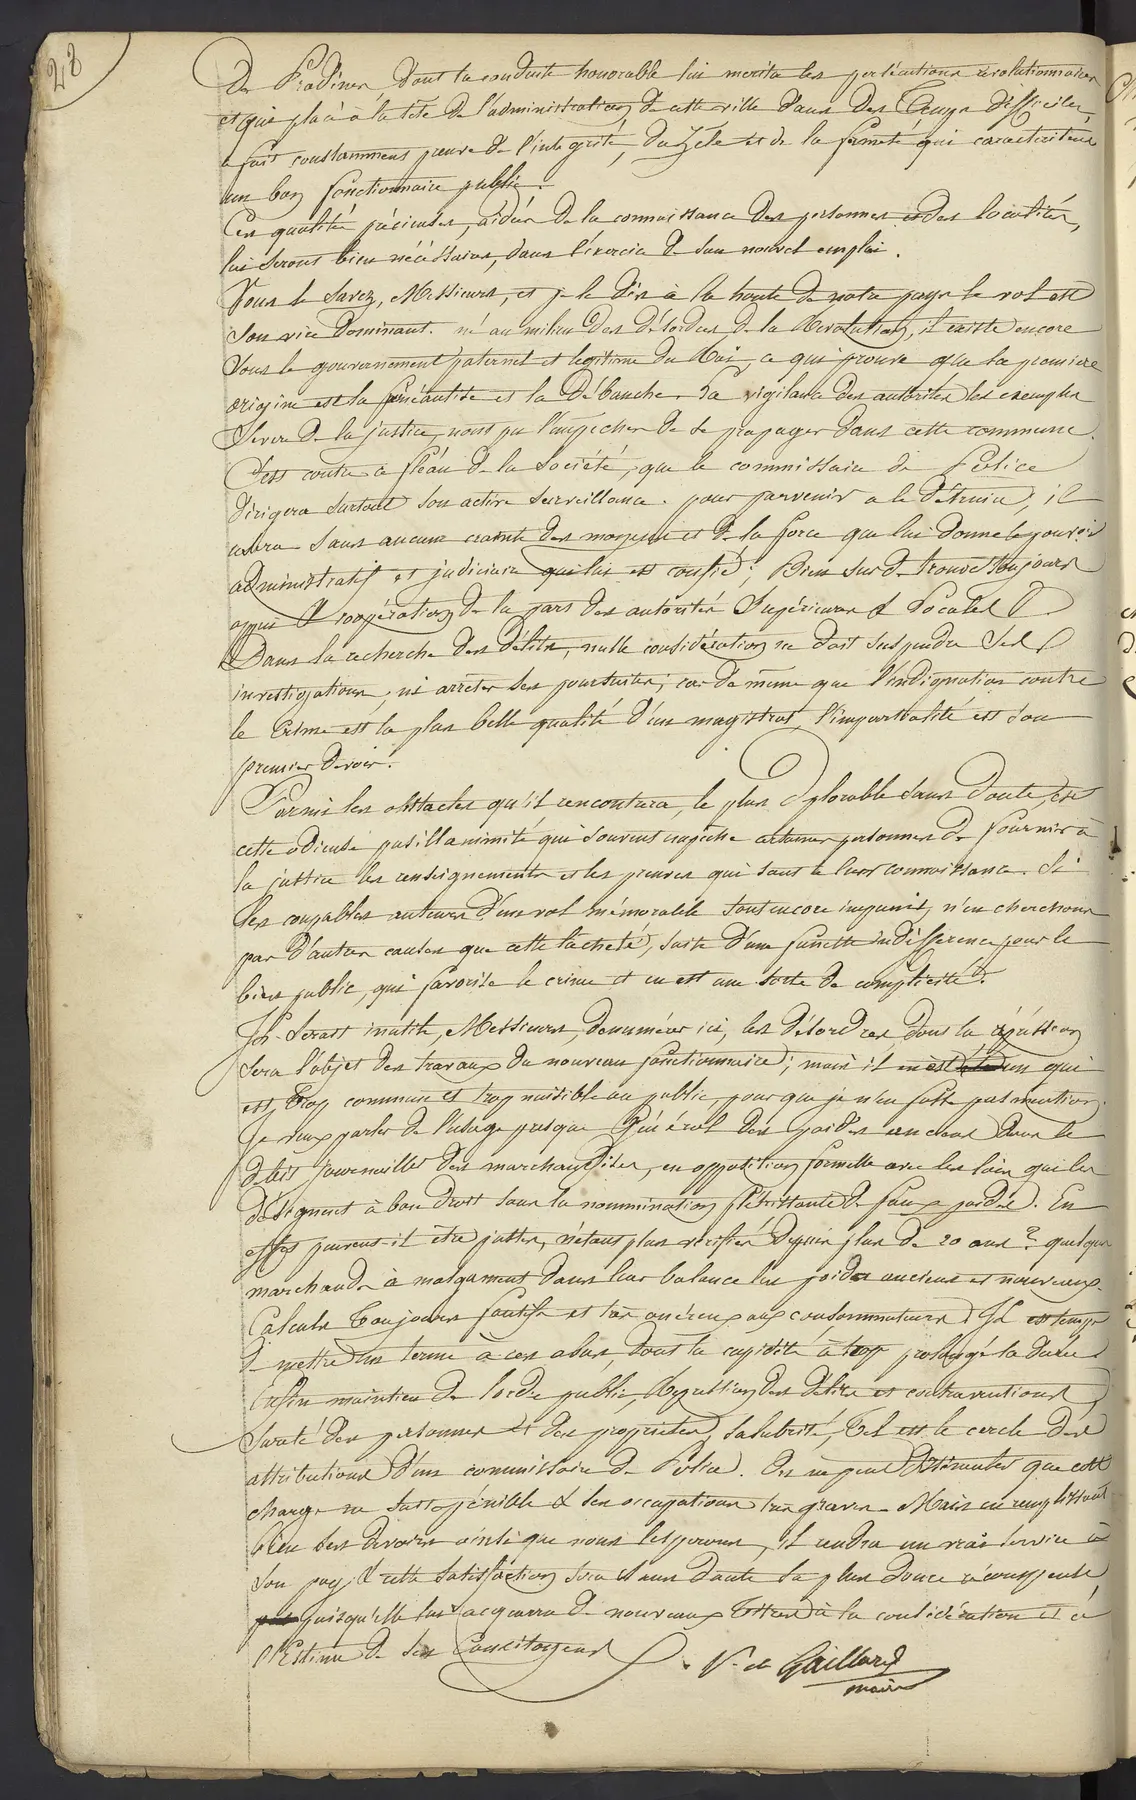 28
De Pradines, dont la conduite honorable lui merita les persécutions révolutionnaires
et qui placé à la tête de l'administration de cette ville dans des temps difficiles,
a fait constamment preuve de l'intégrité, du zèle et de la fermeté qui caractérisent
un bon fonctionnaire public.
Ces qualités précieuses, aidées de la connaissance des personnes et des localités,
lui seront bien nécéssaires, dans l'éxercice de son nouvel emploi.
Vous le savez, Messieurs, et je le dis à la honte de notre pays le vol est
son vice dominant. né au milieu des désordres de la Révolution, il existe encore
sous le gouvernement paternel et legitime du Roi, ce qui prouve que sa premiere
origine est la fainéantise et la débauche. La vigilance des autorités les exemples
severes de la justice, n'ont pu l'empecher de se propager dans cette commune.
C'est contre ce fléau de la société, que le commissaire de Police
dirigera surtout son active surveillance. pour parvenir a le détruire, il
usera sans aucune crainte des moyens et de la force que lui donne le pouvoir
administratif et judiciaire qui lui est confié; Bien sur de trouver toujours
appui & coopération de la part des autorités Supérieures & Locales
Dans la recherche des délits, nulle considération ne doit suspendre ses
investigations, ni arrêter ses poursuites; car de même que l'indignation contre
le Crime est la plus belle qualité d'un magistrat, l'impartialité est son
premier devoir.
Parmi les obstacles qu'il rencontrera, le plus déplorable sans doute, est
cette odieuse pusillanimité qui souvent empêche certaines personnes de fournir à
la justice les renseignements et les preuves qui sont à leur connaissance. Si
les coupables auteurs d'un vol mémorable sont encore impunis, n'en cherchons
pas d'autres causes que cette lâcheté, suite d'une funeste indifference pour le
bien public, qui favorise le crime et en est une sorte de complicité.
Il serait inutile, Messieurs, d'enumérer ici, les désordres dont la répression
sera l'objet des travaux du nouveau fonctionnaire; mais il en est un qui
est trop commun et trop nuisible au public, pour que je n'en fasse pas mention.
Je veux parler de l'usage presque général des poids anciens dans le
débit journalier des marchandises, en opposition formelle avec les lois qui les
désignent à bon droit sous la nommination flétrissante de faux poids. En
effet peuvent-ils être justes, n'étant plus vérifiés depuis plus de 20 ans? quelques
marchands à malgament dans leur balance les poids anciens et nouveaux.
Calculs toujours fautifs et très onéreux aux consommateurs. Il est temps
de mettre un terme à ces abus, dont la cupidité à trop prolongé la durée.
Enfin maintien de l'ordre public, Répression des délits et contraventions,
sureté des personnes et des propriétés, salubrité, Tel est le cercle des
attributions d'un commissaire de Police. On ne peut dissimuler que cette
charge ne soit pénible & ses occupations très graves. Mais en remplissant
bien ses devoirs ainsi que nous l'esperons, il rendra un vrai service à
son pays & cette satisfaction sera sans doute sa plus douce récompense
puisqu'elle lui acquerra de nouveaux titres à la considération et à
l'Estime de ses Concitoyens
V. de Gaillard
maire